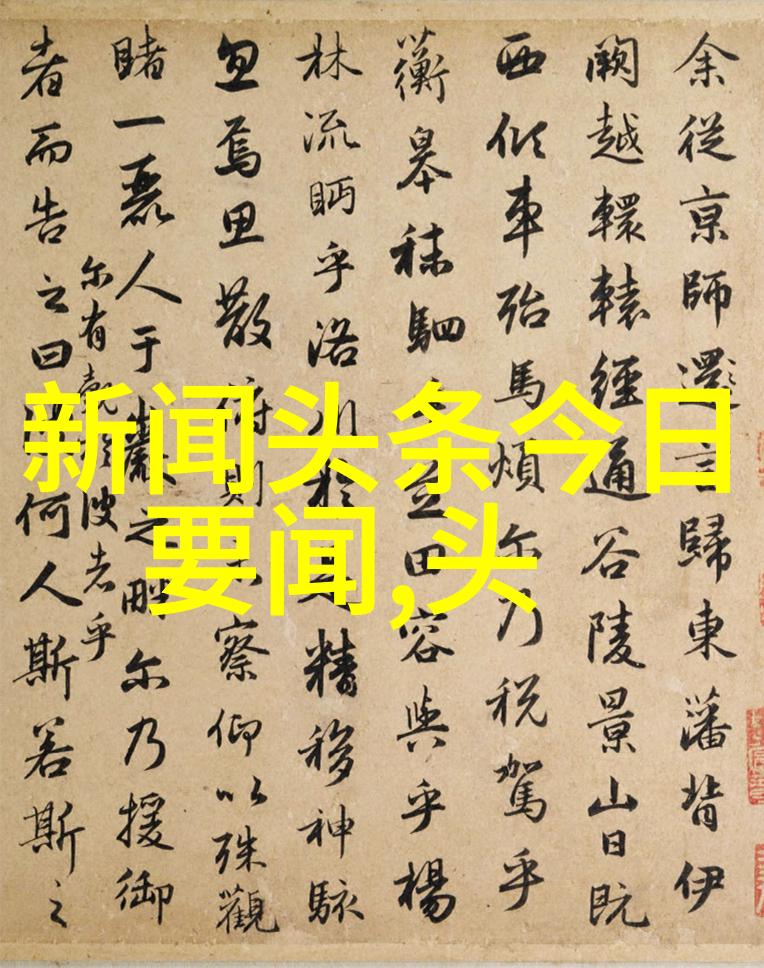 余從京師還言歸東藩背伊
闕越轘轅經通谷陵景山日既
西傾車殆馬煩尔乃税駕乎
蘅皋秣駟乎芝田容與乎楊
林流眄乎洛川於是精移神駭
忽焉思散俯則未察仰以殊觀
睹一麗人于巖之畔尔乃援御
尔有覿於彼者乎
者而告之曰彼何人斯若斯之
新闻头条今日
要闻,头